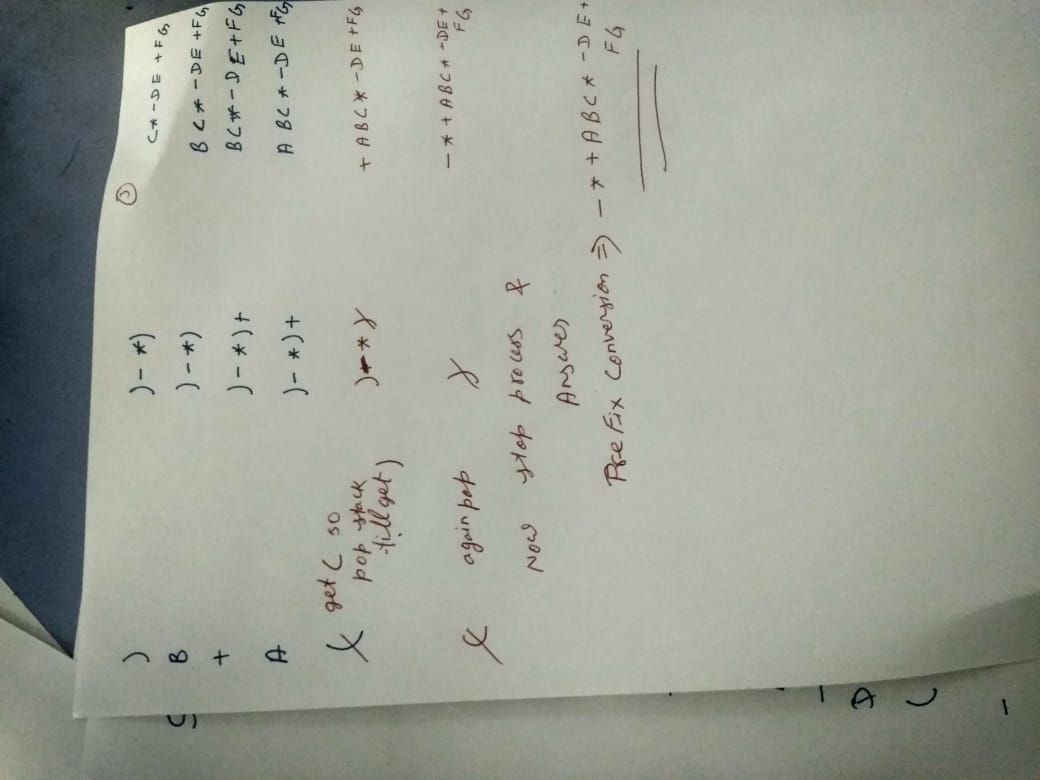 ③
) ) - * ) C * - D E + F G
B ) - * ) B C * - D E + F G
+ ) - * ) + B C * - D E + F G
A ) - * ) + A B C * - D E + F G
( get ( so pop stack till get ) ) - * ) + A B C * - D E + F G
( again pop ) - * + A B C * - D E + F G
Now stop process &
Answer
Prefix conversion ⇒ - * + A B C * - D E +
F G